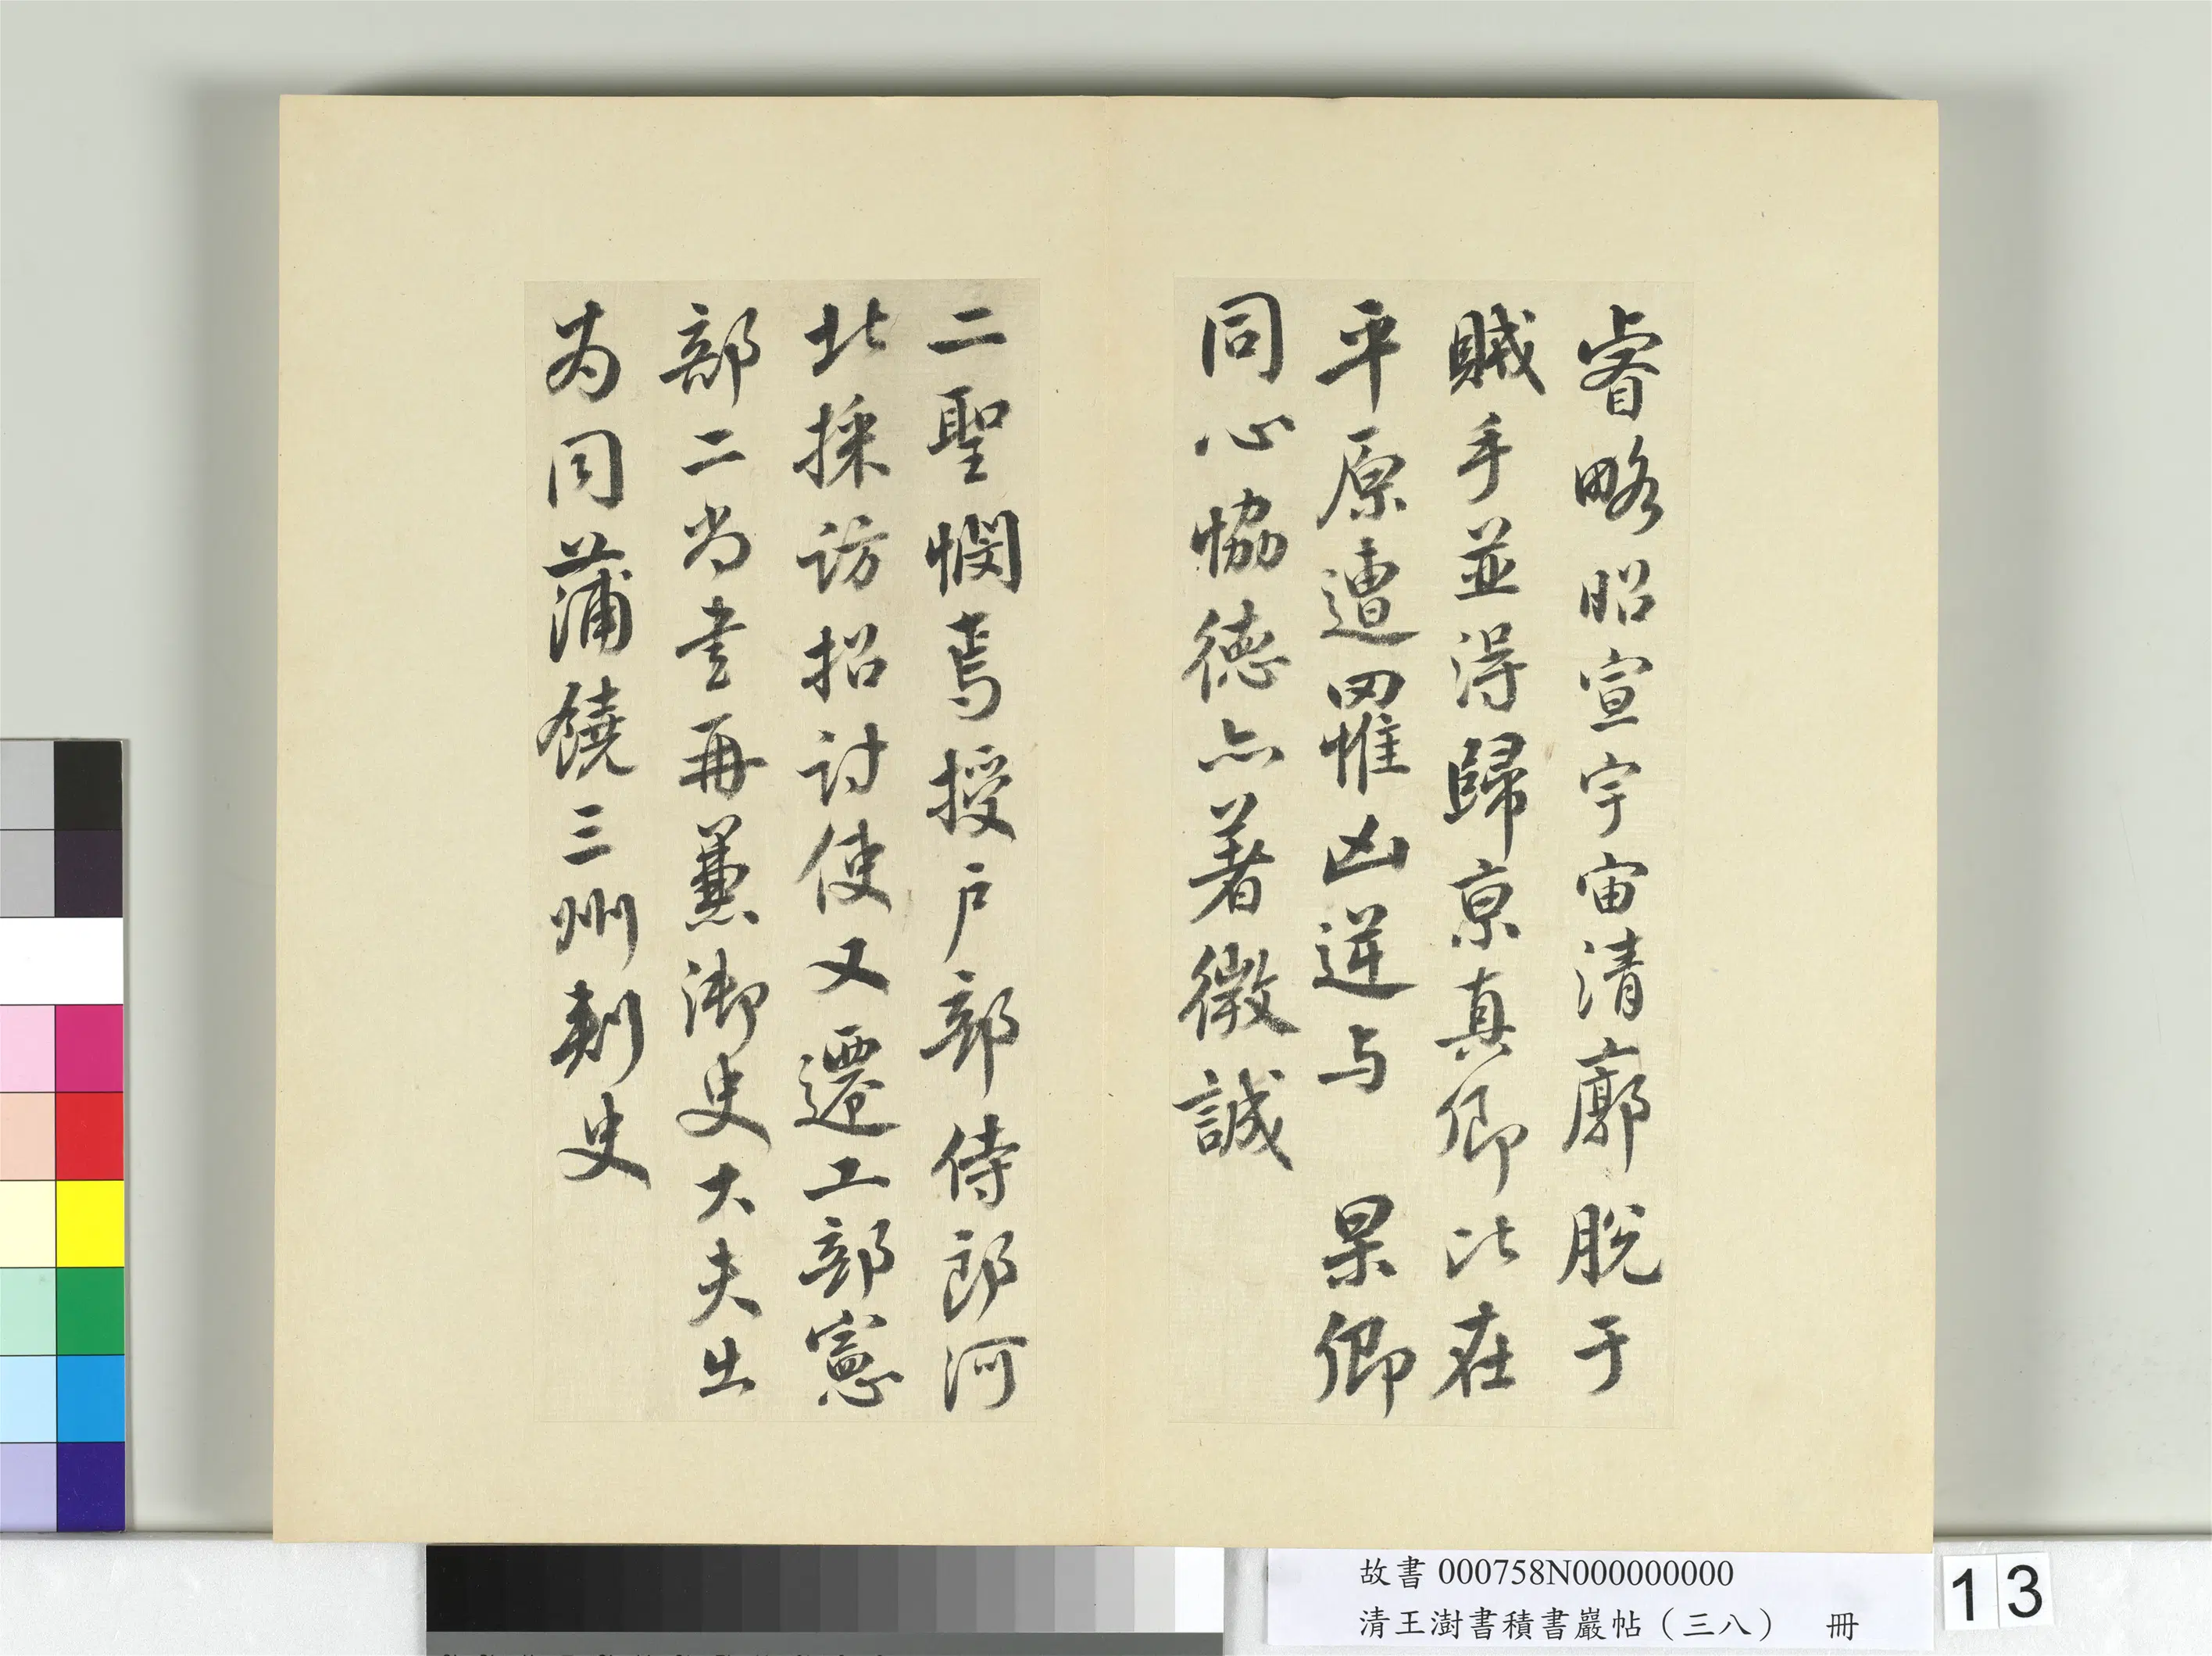 睿略昭宣宇宙清廓脫于
賊手並得歸京真卿比在
平原遭罹凶逆与 杲卿
同心恊德亦著微誠
二聖憫焉授户部侍郎河
北採訪招討使又遷工部憲
部二尚書再兼御史大夫出
为同蒲饒三州刺史
故書 000758N000000000
清王澍書積書巖帖（三八） 冊
13